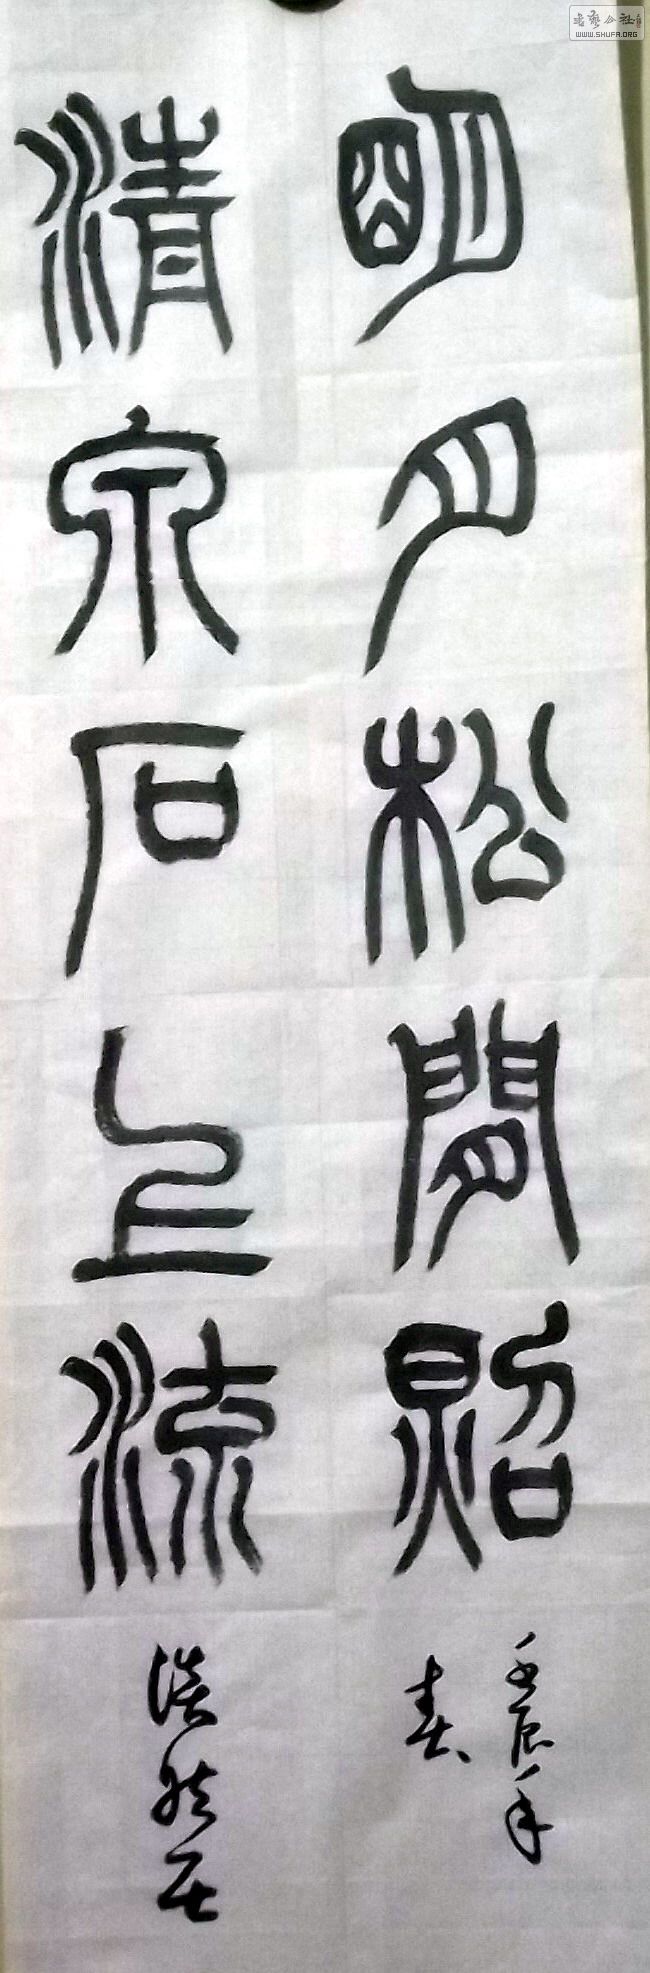 明月松間照
壬辰年
春
清泉石上流
淡然居
書藝公社
WWW.SHUFA.ORG